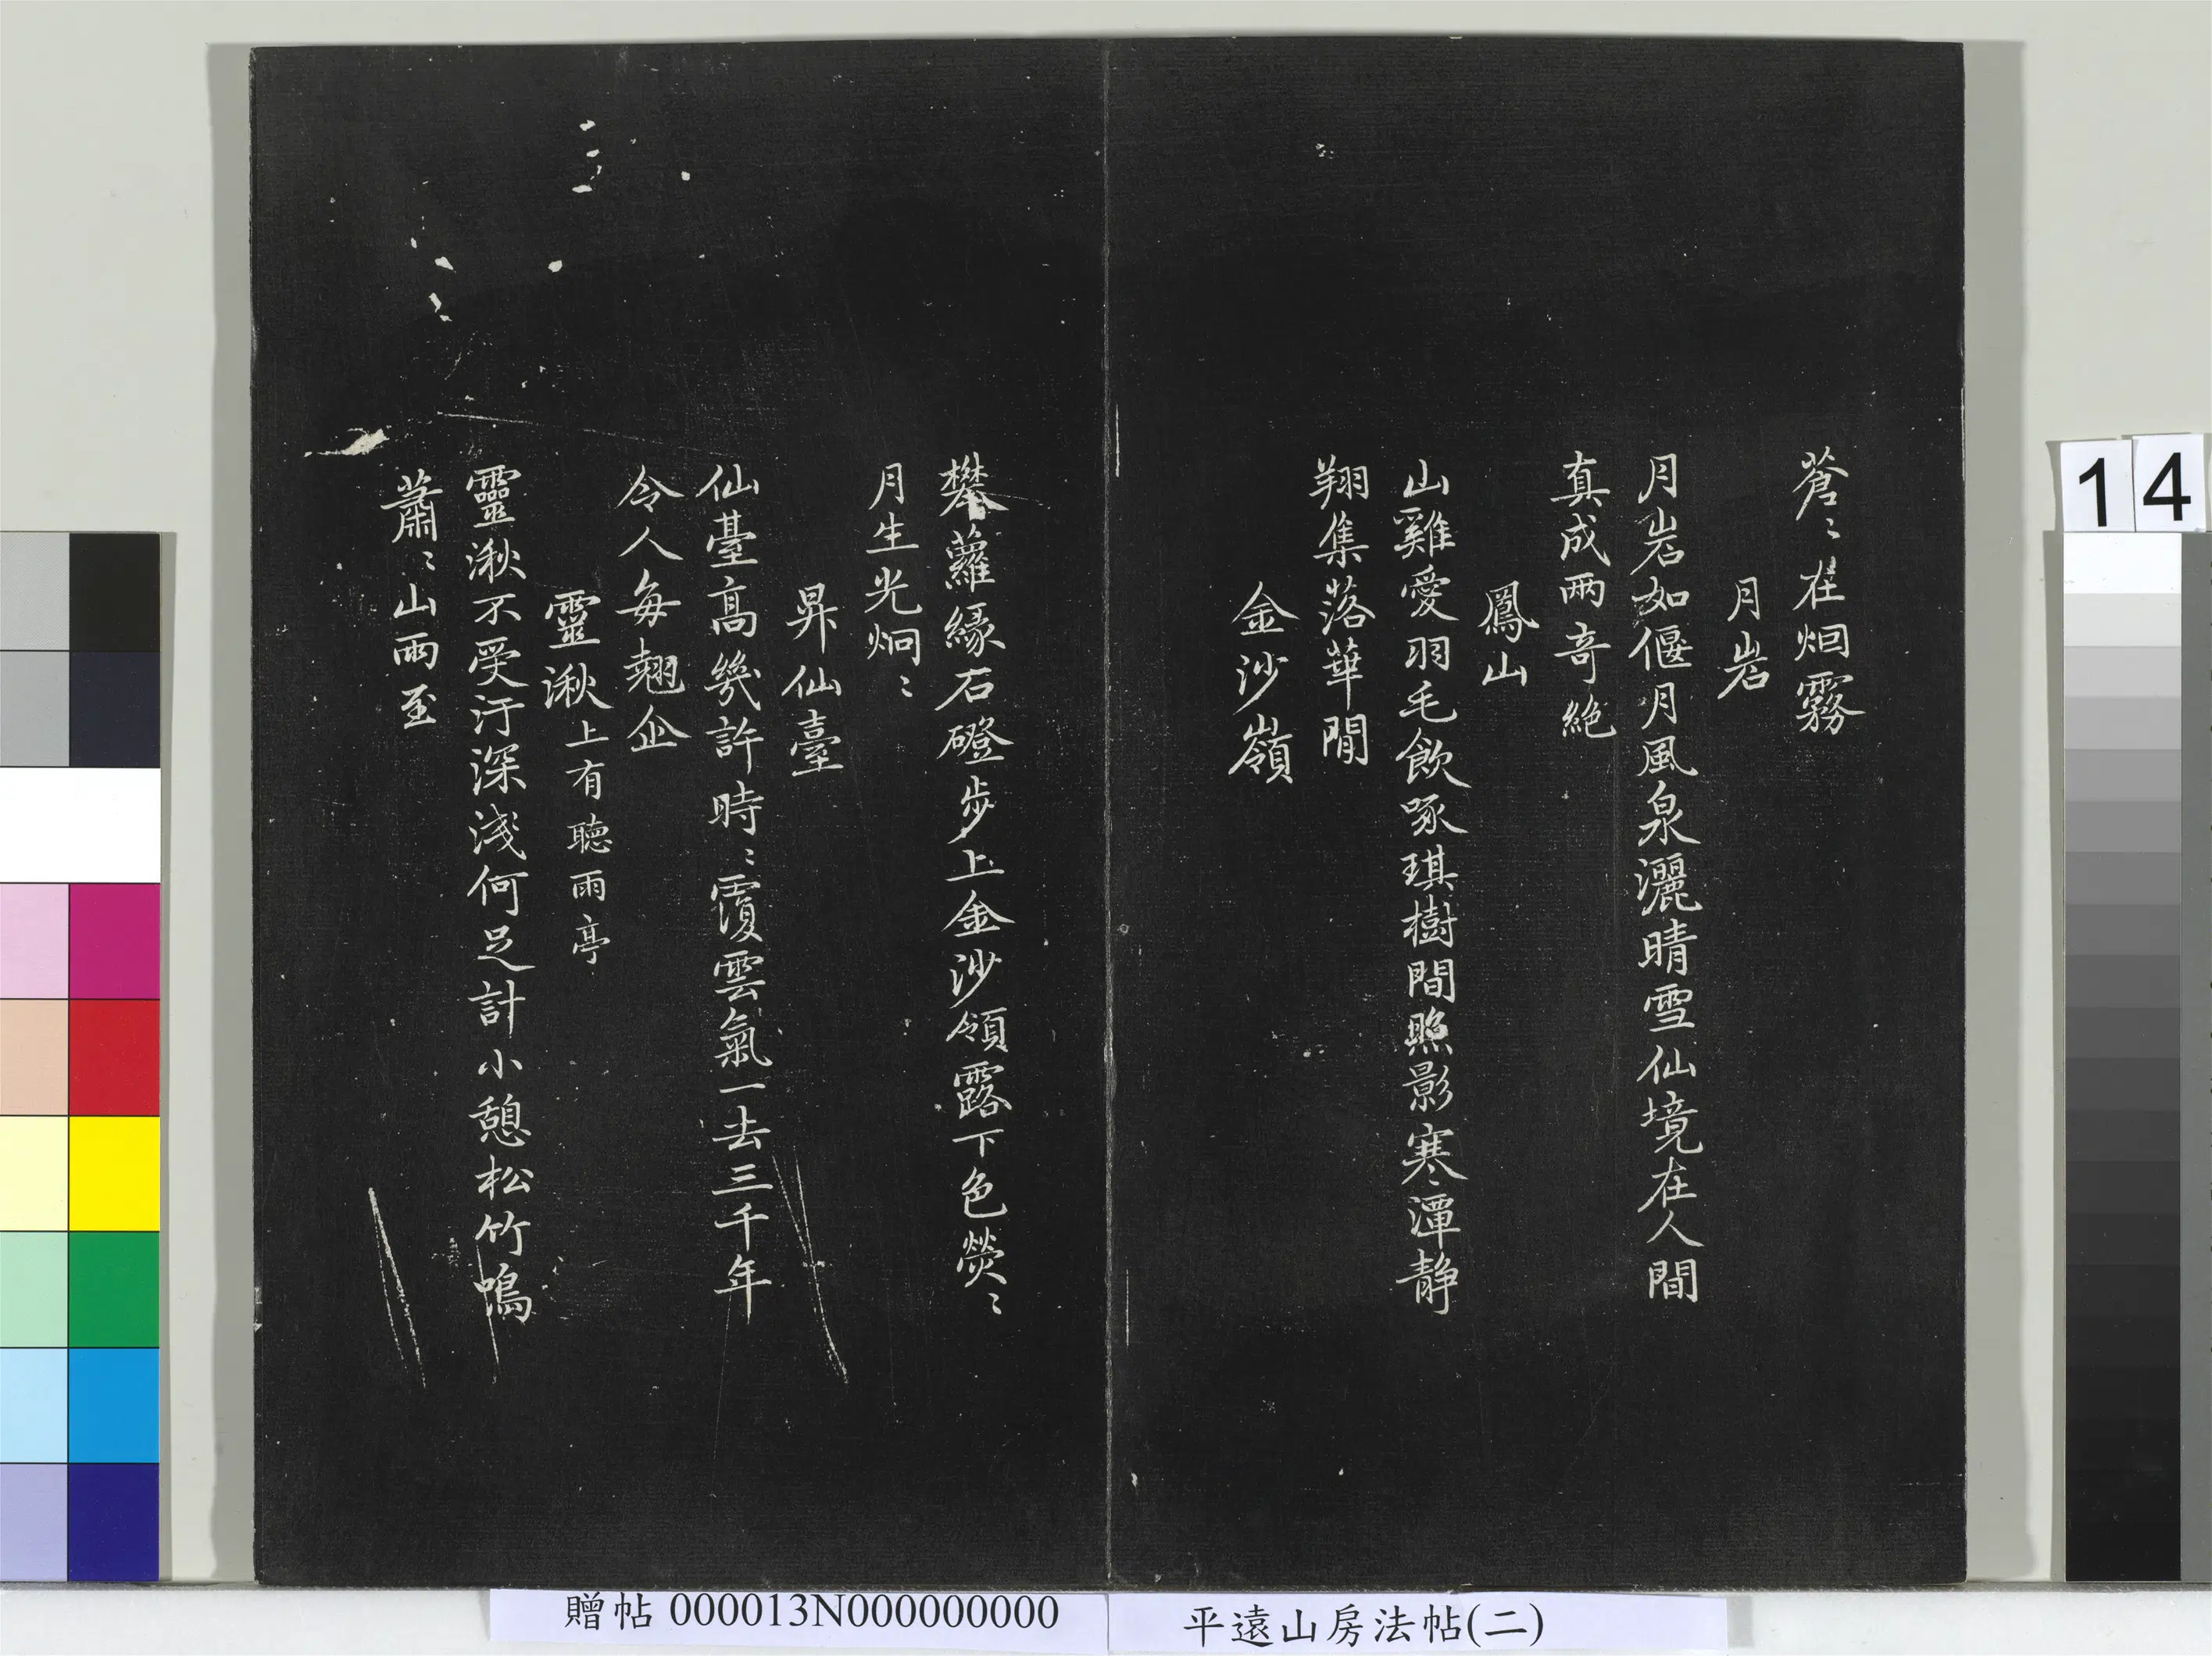 蒼〻在烟霧
月岩
月岩如偃月風泉灑晴雪仙境在人間
真成兩奇絶
鳳山
山雞愛羽毛飲啄琪樹間照影寒潭靜
翔集落華閒
金沙嶺
攀蘿緣石磴步上金沙領露下色熒〻
月生光炯〻
昇仙臺
仙臺高幾許時〻覆雲氣一去三千年
令人每翹企
靈湫上有聽雨亭
靈湫不受汙深淺何足計小憩松竹鳴
蕭〻山雨至
14
贈帖 000013N000000000
平遠山房法帖(二)